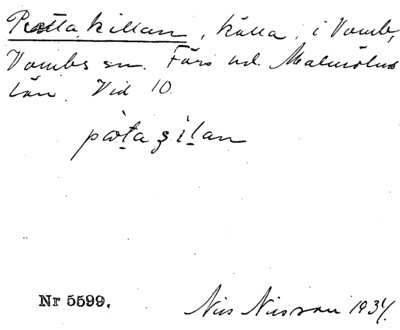 Pottakillan, källa, i Vomb,
Vombs sn. Färs hd. Malmöhus
län. Vid 10.
Nr 5599.
Nils Nilsson 1934.